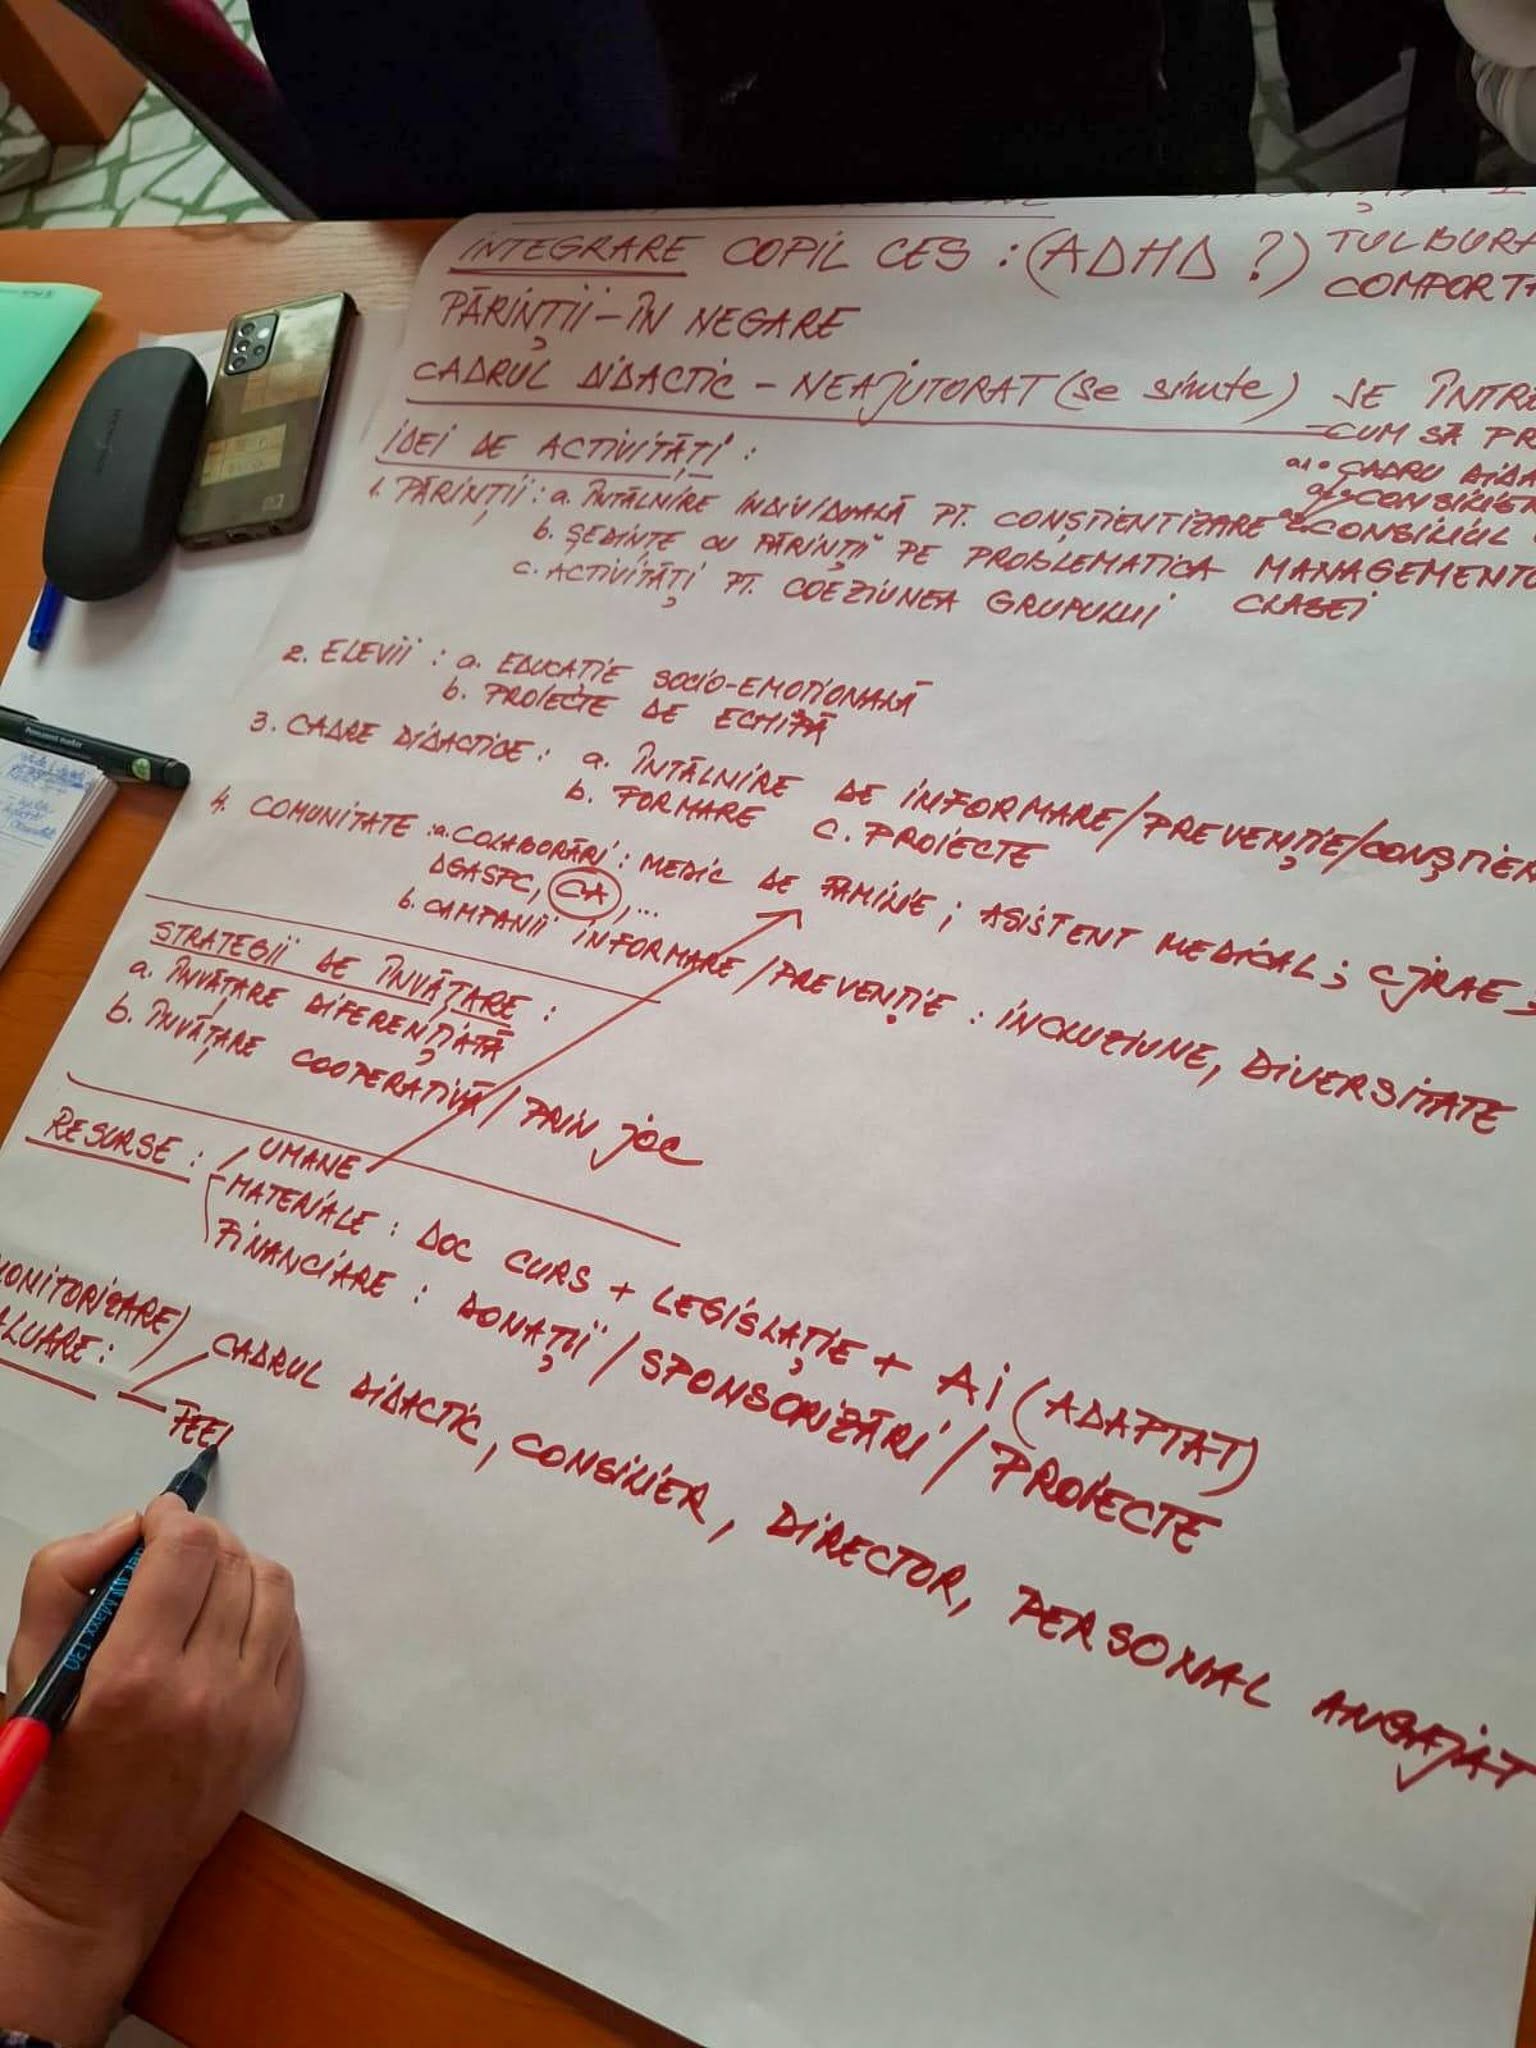 INTEGRARE COPIL CES : (ADHD ?) TULBURA
COMPORTA
PĂRINȚII - ÎN NEGARE
CADRUL DIDACTIC - NEAJUTORAT (se simte) SE ÎNTRE
- CUM SĂ PR
IDEI DE ACTIVITĂȚI :
a1. CADRU DIDA
CONSILIER
1. PĂRINȚII : a. ÎNTÂLNIRE INDIVIDUALĂ PT. CONȘTIENTIZARE CONSILIUL
b. ȘEDINȚE CU PĂRINȚII PE PROBLEMATICA MANAGEMENTU
CLASEI
c. ACTIVITĂȚI PT. COEZIUNEA GRUPULUI
2. ELEVII : a. EDUCAȚIE SOCIO-EMOȚIONALĂ
b. PROIECTE DE ECHIPĂ
3. CADRE DIDACTICE : a. ÎNTÂLNIRE DE INFORMARE/PREVENȚIE/CONȘTIEN
b. FORMARE c. PROIECTE
4. COMUNITATE : a. COLABORĂRI : MEDIC DE FAMILIE ; ASISTENT MEDICAL ; CJRAE ;
DGASPC, CA, ...
b. CAMPANII INFORMARE / PREVENȚIE : INCLUZIUNE, DIVERSITATE
STRATEGII DE ÎNVĂȚARE :
a. ÎNVĂȚARE DIFERENȚIATĂ
b. ÎNVĂȚARE COOPERATIVĂ / PRIN JOC
RESURSE : UMANE
MATERIALE : DOC CURS + LEGISLAȚIE + AI (ADAPTAT)
FINANCIARE : DONAȚII / SPONSORIZĂRI / PROIECTE
MONITORIZARE /
ALUARE : CADRUL DIDACTIC, CONSILIER, DIRECTOR, PERSONAL ANGAJAT
FEE
Permanent marker
Maxx 130